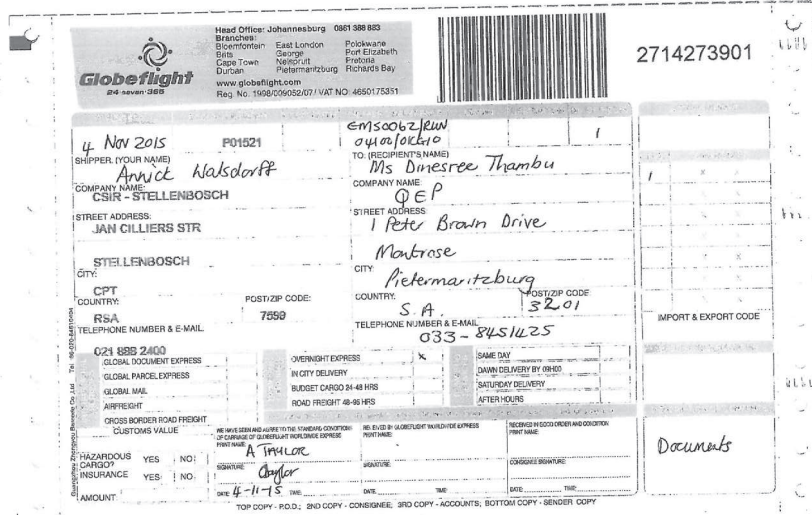 Head Office: Johannesburg 0861 388 883
Branches:
Bloemfontein East London Polokwane
Brits George Port Elizabeth
Cape Town Nelspruit Pretoria
Durban Pietermaritzburg Richards Bay
www.globeflight.com
Reg. No. 1998/009052/07/ VAT NO: 4650175351
Globeflight
24-seven-365
2714273901
4 Nov 2015
P01521
EMS0062/RUN
1
SHIPPER: (YOUR NAME)
Annick Walsdorff
COMPANY NAME:
CSIR - STELLENBOSCH
STREET ADDRESS:
JAN CILLIERS STR
STELLENBOSCH
CITY:
CPT
COUNTRY:
POST/ZIP CODE:
RSA
7599
TELEPHONE NUMBER & E-MAIL
021 888 2400
TO: (RECIPIENT'S NAME)
Ms Dinesree Thambu
COMPANY NAME
QEP
STREET ADDRESS
1 Peter Brown Drive
Montrose
CITY
Pietermaritzburg
COUNTRY:
POST/ZIP CODE
S.A.
3201
TELEPHONE NUMBER & E-MAIL
033-8451425
1 x x
IMPORT & EXPORT CODE
GLOBAL DOCUMENT EXPRESS
GLOBAL PARCEL EXPRESS
GLOBAL MAIL
AIRFREIGHT
CROSS BORDER ROAD FREIGHT
OVERNIGHT EXPRESS x
IN CITY DELIVERY
BUDGET CARGO 24-48 HRS
ROAD FREIGHT 48-96 HRS
SAME DAY
DAWN DELIVERY BY 09H00
SATURDAY DELIVERY
AFTER HOURS
CUSTOMS VALUE
HAZARDOUS CARGO? YES NO
INSURANCE YES NO
AMOUNT
WE HAVE SEEN AND AGREE TO THE STANDARD CONDITIONS
OF CARRIAGE OF GLOBEFLIGHT WORLDWIDE EXPRESS
PRINT NAME:
A TAYLOR
SIGNATURE:
DATE: 4-11-15 TIME:
RECEIVED BY GLOBEFLIGHT WORLDWIDE EXPRESS
PRINT NAME:
SIGNATURE:
DATE TIME:
RECEIVED IN GOOD ORDER AND CONDITION
PRINT NAME:
CONSIGNEE SIGNATURE:
DATE: TIME:
Documents
TOP COPY - P.O.D.; 2ND COPY - CONSIGNEE; 3RD COPY - ACCOUNTS; BOTTOM COPY - SENDER COPY